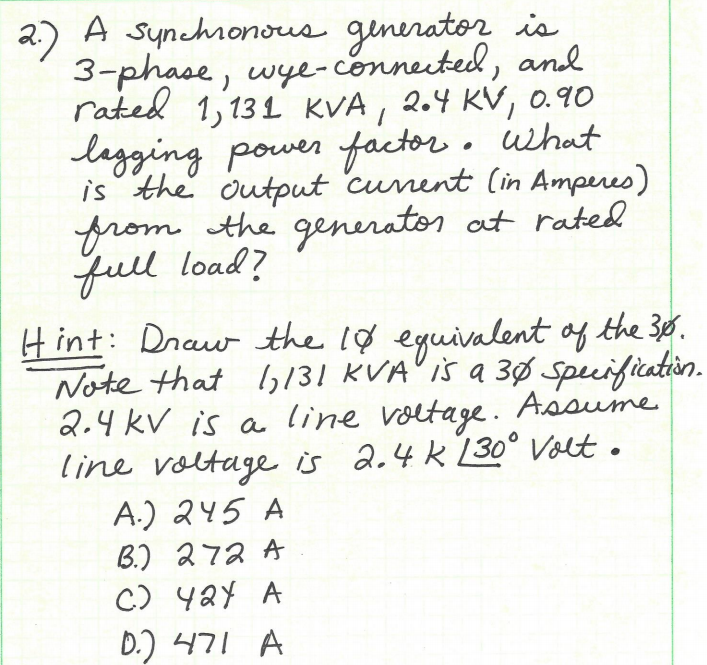 2.) A synchronous generator is
3-phase, wye-connected, and
rated 1,131 KVA, 2.4 KV, 0.90
lagging power factor. What
is the output current (in Amperes)
from the generator at rated
full load?
Hint: Draw the 1ø equivalent of the 3ø.
Note that 1,131 KVA is a 3ø specification.
2.4 KV is a line voltage. Assume
line voltage is 2.4 K ∠30° Volt.
A.) 245 A
B.) 272 A
C.) 424 A
D.) 471 A